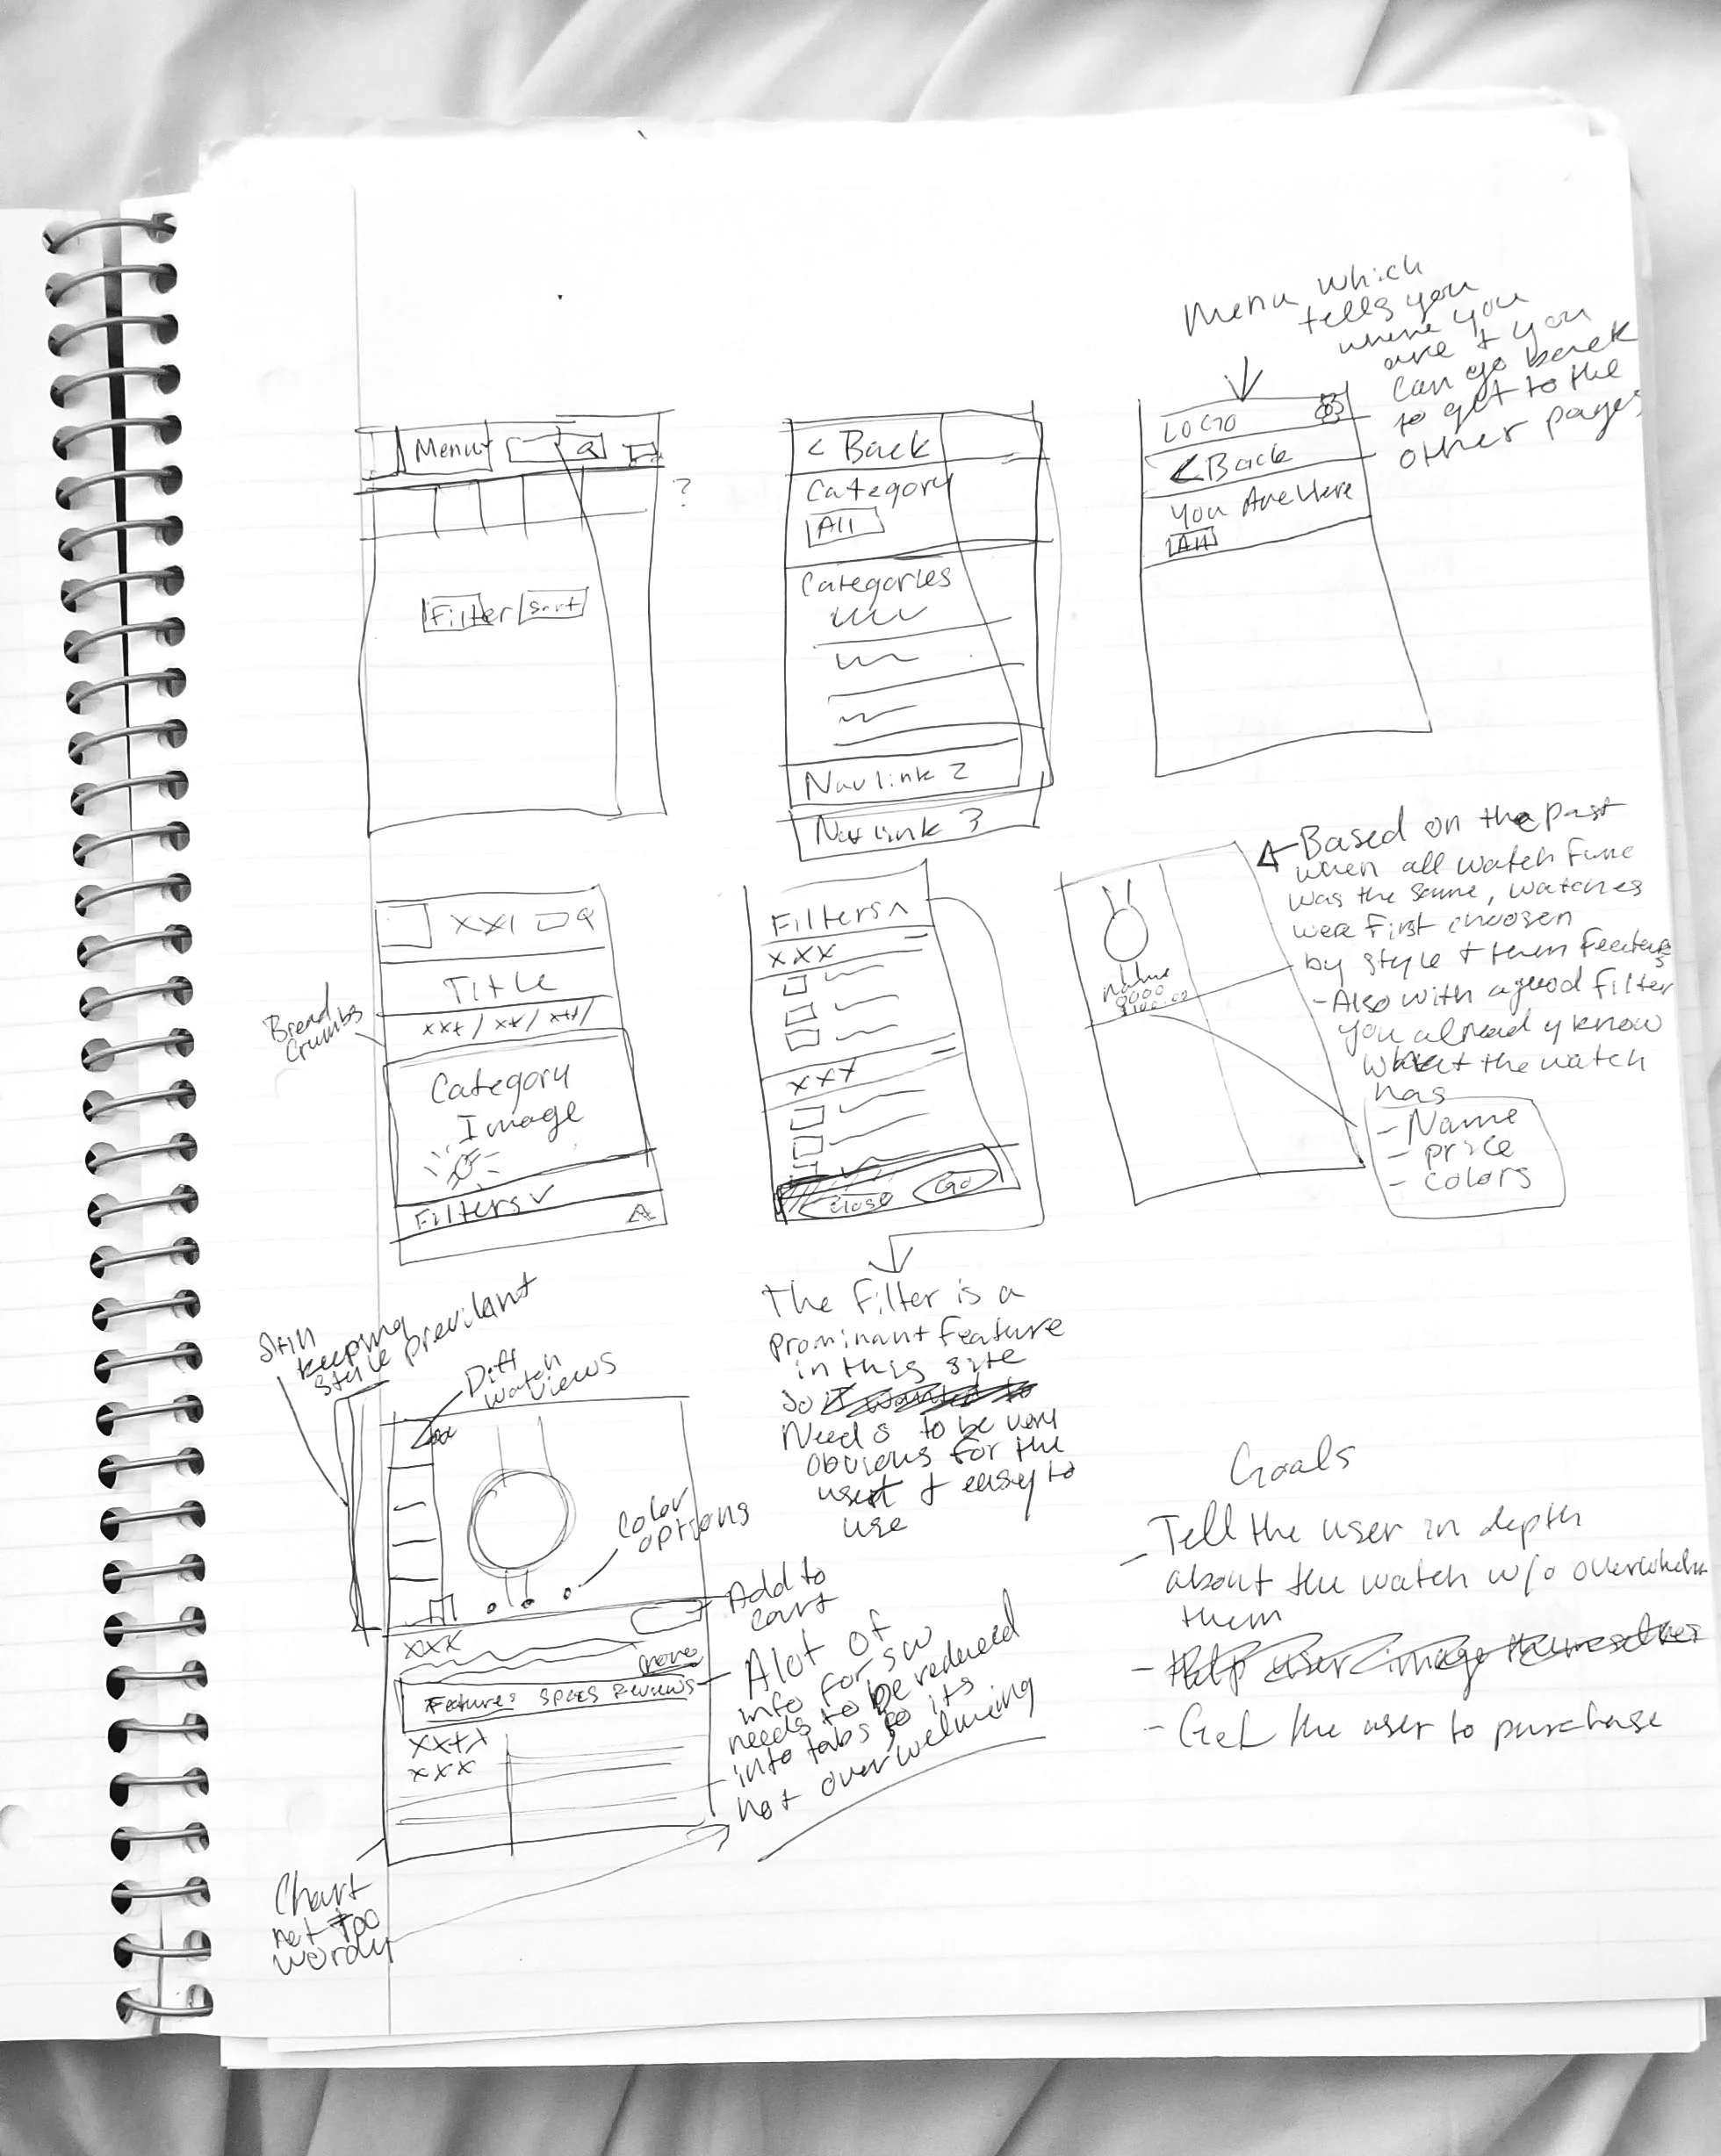 Menu which
tells you
where you
are + you
can go back
to get to the
other pages
Menu
?
Filter Sort
< Back
Category
All
Categories
Nav link 2
Nav link 3
LOGO
< Back
You Are Here
All
XXI
Title
xxx / xx / xxx /
Bread
Crumbs
Category
Image
Filters
Filters
XXX
XXX
Close Go
Name
Based on the past
when all watch func
was the same, watches
were first choosen
by style + then features
- Also with a good filter
you already know
what the watch
has
- Name
- price
- colors
The Filter is a
prominant feature
in this site
so
Needs to be very
obvious for the
user + easy to
use
Still
keeping
style previlant
Diff
watch
views
Color
options
Add to
cart
XXX
more
Features Specs Reviews
XXXX
XXX
A lot of
info for sw
needs to be reduced
into tabs so its
not overwelming
Chart
not too
wordy
Goals
- Tell the user in depth
about the watch w/o overwhelm
them
- Help user image themselves
- Get the user to purchase